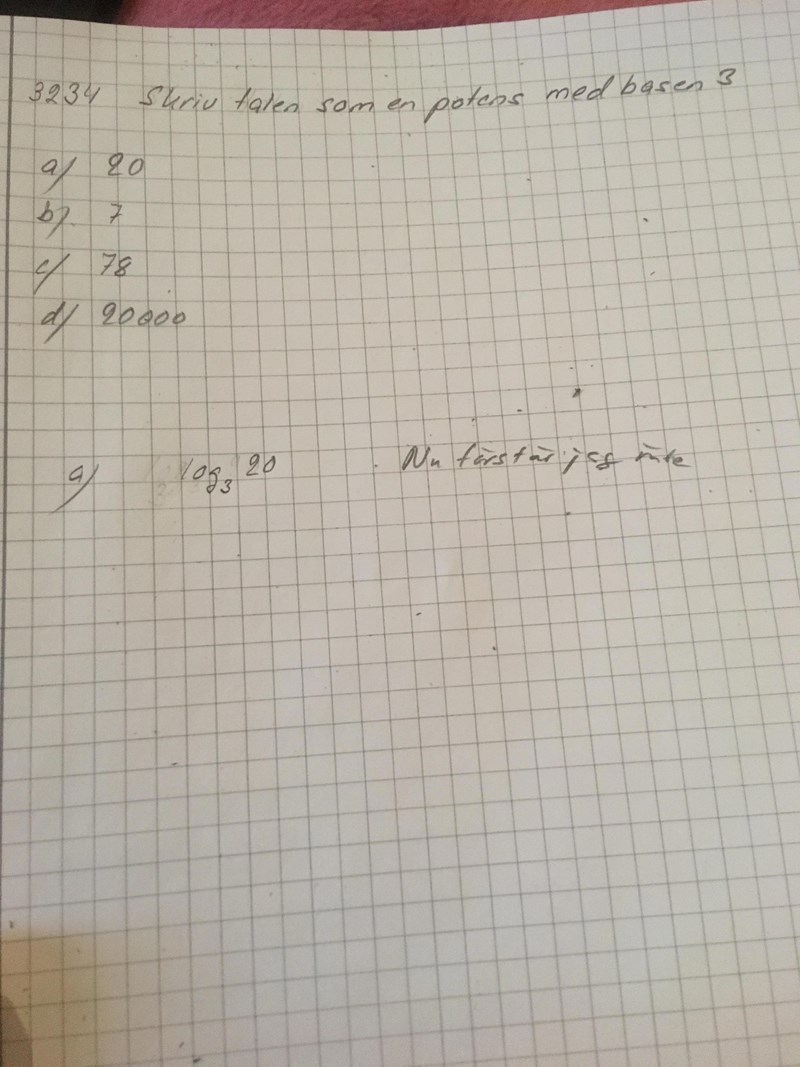 3234 Skriv talen som en potens med basen 3
a) 20
b) 7
c) 78
d) 20000
a) log₃ 20 Nu förstår jag inte